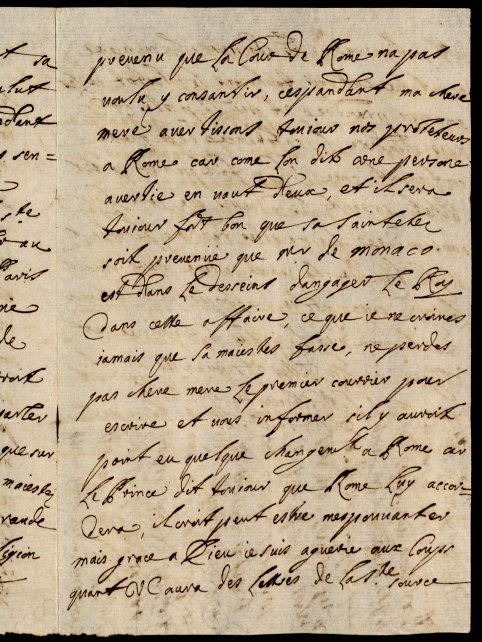 t sa
prevenu que la Cour de Rome na pas
voulu y consantir, cespandant ma chere
mere avertissons toujour nos protecteurs
a Rome car come lon dit une persone
avertie en vaut deux, et il sera
toujour fort bon que sa saintetes
soit prevenue que mr de monaco
est dans le desseins dangager le Roy
dans cette affaire, ce que ie ne croires
iamais que sa maiestes fasse, ne perdes
pas chere mere le premier courrier pour
escrire et vous informer sil y auroit
point eu quelque changemt a Rome car
le Prince dit toujour que Rome luy accor=
dera, il croit peut estre mespouvanter
mais grace a Dieu ie suis aguerie aux Coups
quant VC aura des lettres de la ste source
ste
au
Paris
ne
de
arler
que sur
maiestes
rande
ligion